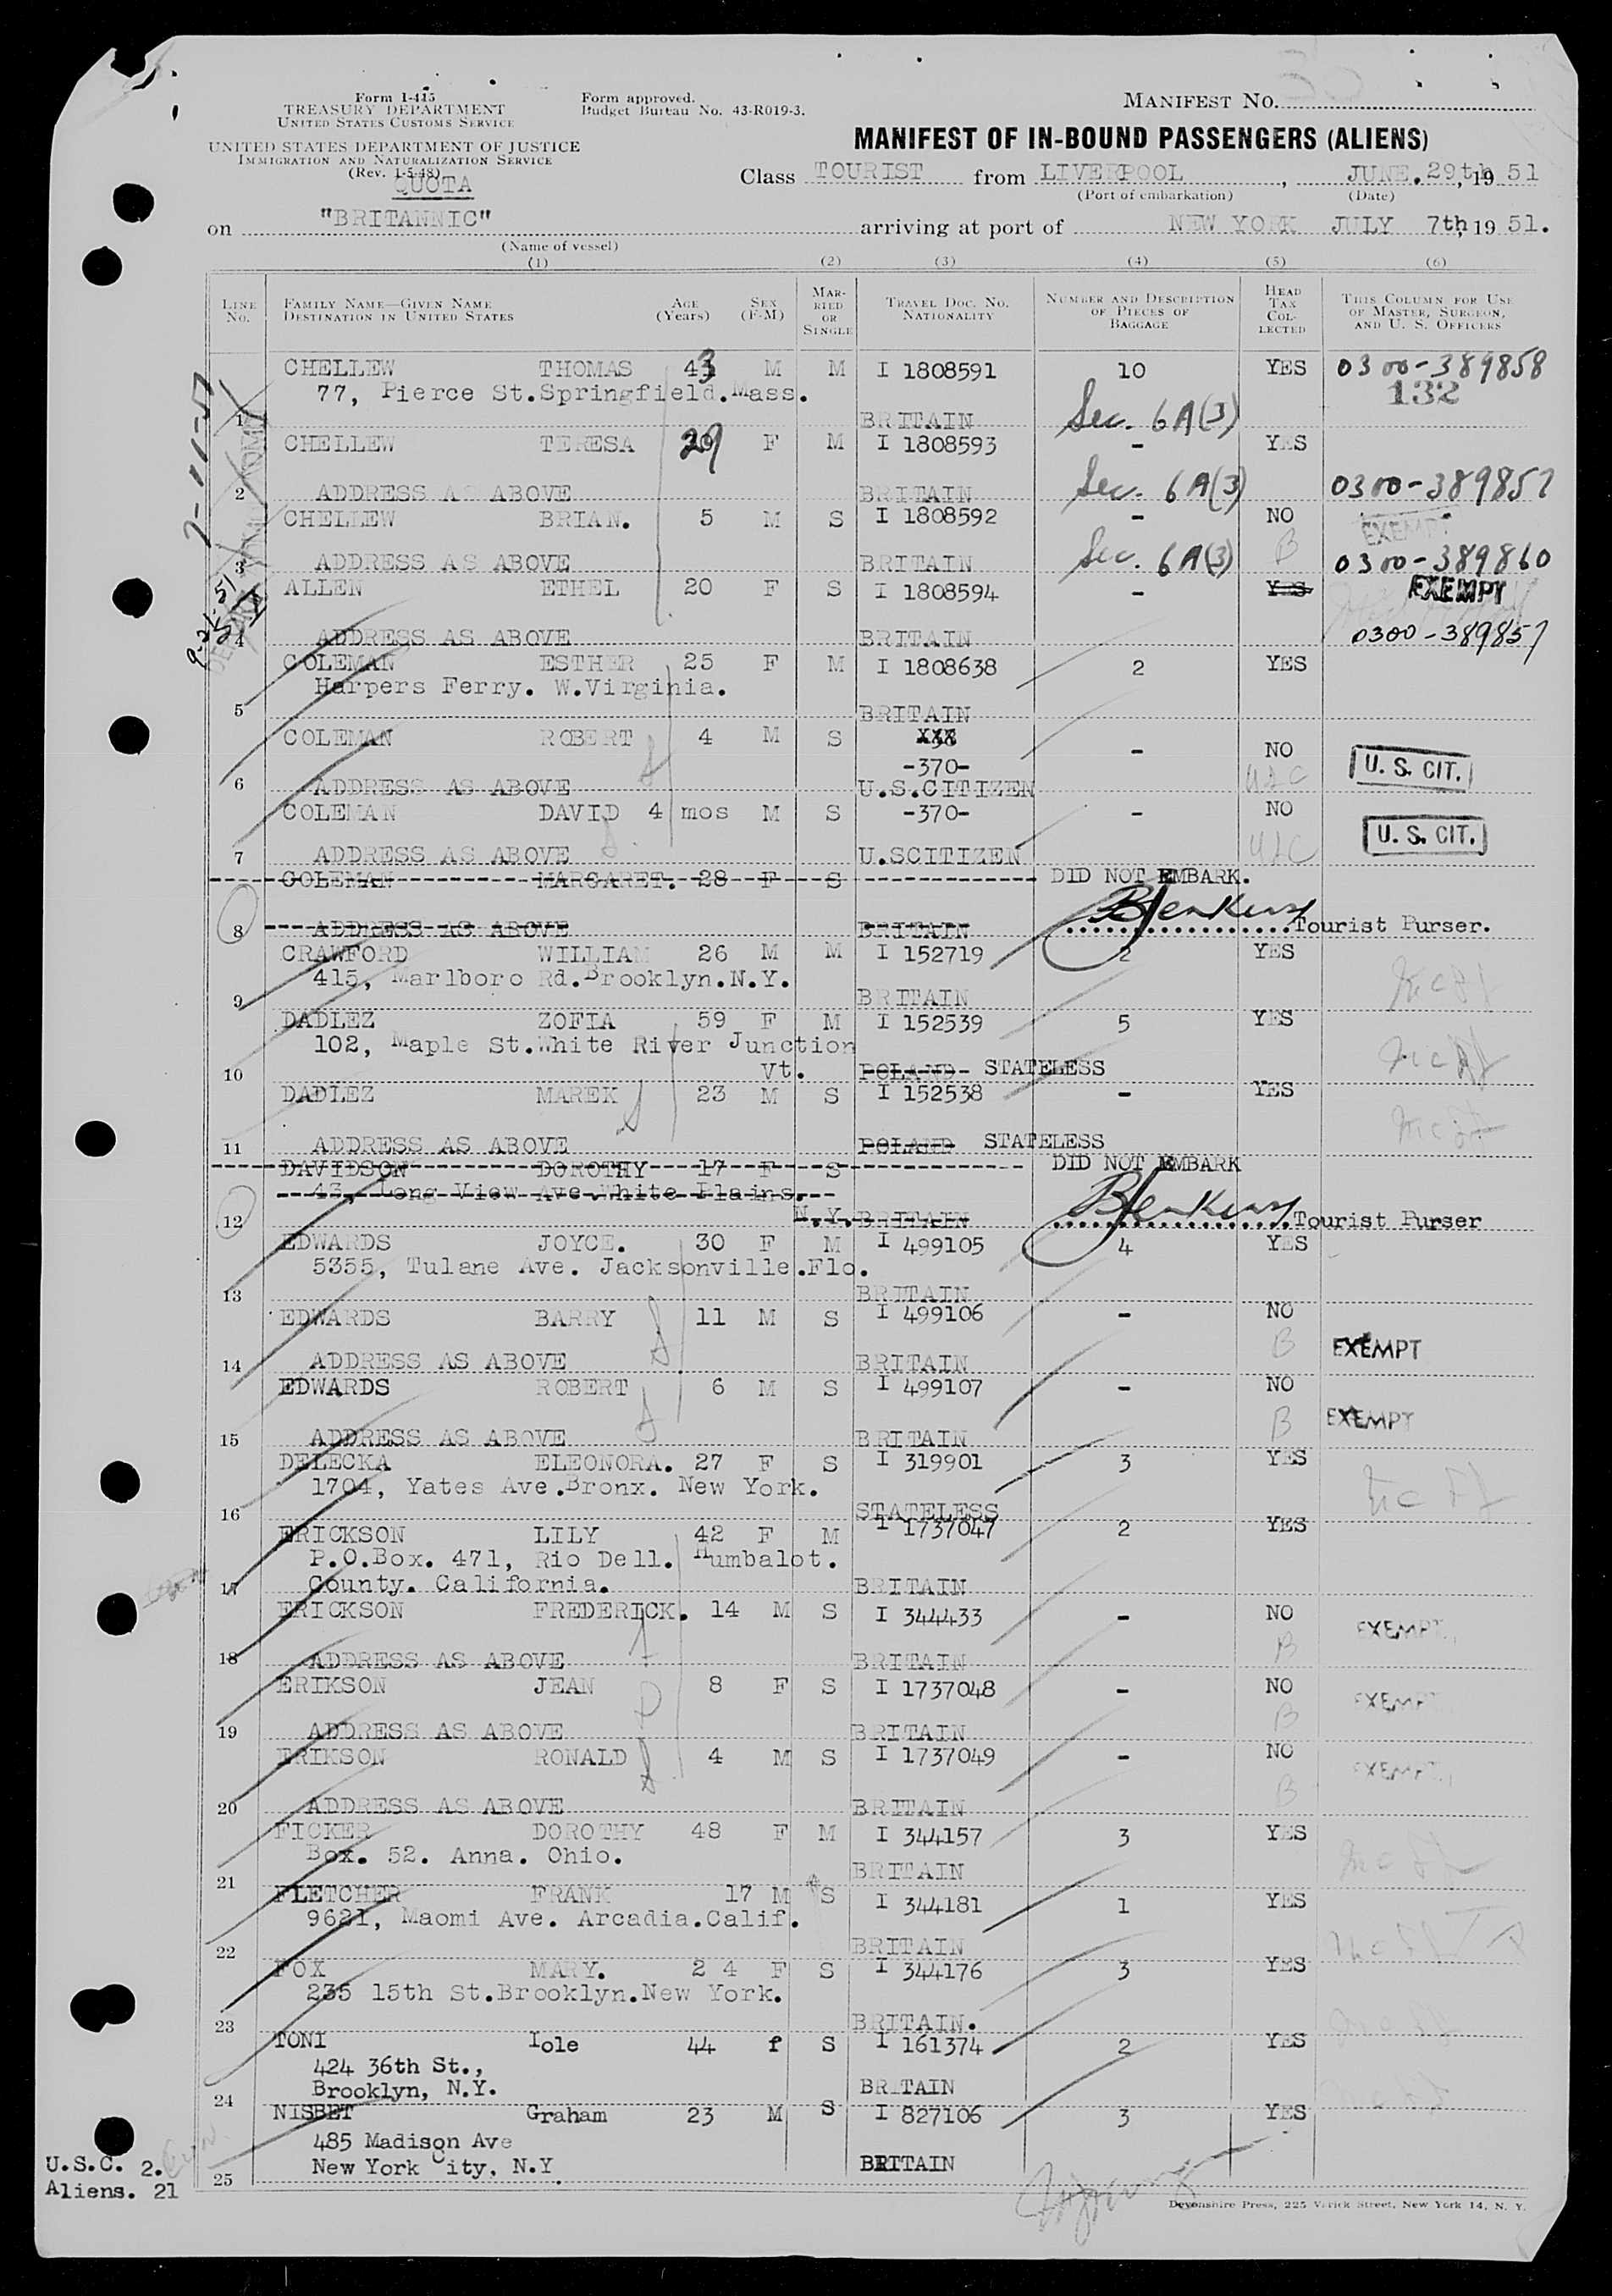 Form I-415
TREASURY DEPARTMENT
UNITED STATES CUSTOMS SERVICE
UNITED STATES DEPARTMENT OF JUSTICE
IMMIGRATION AND NATURALIZATION SERVICE
(Rev. 1-5-48)
QUOTA
Form approved.
Budget Bureau No. 43-R019-3.
MANIFEST NO.
MANIFEST OF IN-BOUND PASSENGERS (ALIENS)
Class TOURIST from LIVERPOOL, JUNE. 29th, 19 51
(Port of embarkation) (Date)
on "BRITANNIC" arriving at port of NEW YORK JULY 7th, 19 51.
(Name of vessel)
(1) (2) (3) (4) (5) (6)
LINE NO. FAMILY NAME—GIVEN NAME DESTINATION IN UNITED STATES AGE (Years) SEX (F-M) MARRIED OR SINGLE TRAVEL DOC. NO. NATIONALITY NUMBER AND DESCRIPTION OF PIECES OF BAGGAGE HEAD TAX COLLECTED THIS COLUMN FOR USE OF MASTER, SURGEON, AND U. S. OFFICERS
7-11-51
CHELLEW THOMAS 43 M M I 1808591 10 YES 0300-389858
77, Pierce St.Springfield.Mass. 132
1 BRITAIN Sec. 6A(3)
CHELLEW TERESA 29 F M I 1808593 - YES
2 ADDRESS AS ABOVE BRITAIN Sec. 6A(3) 0300-389857
CHELLEW BRIAN. 5 M S I 1808592 - NO EXEMPT
3 ADDRESS AS ABOVE BRITAIN Sec. 6A(3) B 0300-389860
ALLEN ETHEL 20 F S I 1808594 - YES EXEMPT
4 ADDRESS AS ABOVE BRITAIN 0300-389857
COLEMAN ESTHER 25 F M I 1808638 2 YES
Harpers Ferry. W.Virginia.
5 BRITAIN
COLEMAN ROBERT 4 M S XXX - NO
-370- U. S. CIT.
6 ADDRESS AS ABOVE U.S.CITIZEN
COLEMAN DAVID 4 mos M S -370- - NO
U. S. CIT.
7 ADDRESS AS ABOVE U.SCITIZEN
COLEMAN MARGARET. 28 F S DID NOT EMBARK.
8 ADDRESS AS ABOVE BRITAIN BJenkins Tourist Purser.
CRAWFORD WILLIAM 26 M M I 152719 2 YES
415, Marlboro Rd.Brooklyn.N.Y.
9 BRITAIN
DADLEZ ZOFIA 59 F M I 152539 5 YES
102, Maple St.White River Junction
10 Vt. POLAND STATELESS
DADLEZ MAREK 23 M S I 152538 - YES
11 ADDRESS AS ABOVE POLAND STATELESS
DAVIDSON DOROTHY 17 F S DID NOT EMBARK
43, Long View Ave.White Plains.
12 N.Y. BRITAIN BJenkins Tourist Purser
EDWARDS JOYCE. 30 F M I 499105 4 YES
5355, Tulane Ave. Jacksonville.Flo.
13 BRITAIN
EDWARDS BARRY 11 M S I 499106 - NO
B EXEMPT
14 ADDRESS AS ABOVE BRITAIN
EDWARDS ROBERT 6 M S I 499107 - NO
B EXEMPT
15 ADDRESS AS ABOVE BRITAIN
DELECKA ELEONORA. 27 F S I 319901 3 YES
1704, Yates Ave.Bronx. New York.
16 STATELESS
ERICKSON LILY 42 F M I 1737047 2 YES
P.O.Box. 471, Rio Dell. Humbalot.
17 County. California. BRITAIN
ERICKSON FREDERICK. 14 M S I 344433 - NO
EXEMPT
18 ADDRESS AS ABOVE BRITAIN B
ERIKSON JEAN 8 F S I 1737048 - NO
EXEMPT
19 ADDRESS AS ABOVE BRITAIN B
ERIKSON RONALD 4 M S I 1737049 - NO
EXEMPT
20 ADDRESS AS ABOVE BRITAIN B
FICKER DOROTHY 48 F M I 344157 3 YES
Box. 52. Anna. Ohio.
21 BRITAIN
FLETCHER FRANK 17 M S I 344181 1 YES
9621, Maomi Ave. Arcadia.Calif.
22 BRITAIN
FOX MARY. 2 4 F S I 344176 3 YES
235 15th St.Brooklyn.New York.
23 BRITAIN.
TONI Iole 44 f S I 161374 2 YES
424 36th St.,
24 Brooklyn, N.Y. BRITAIN
NISBET Graham 23 M S I 827106 3 YES
485 Madison Ave
25 New York City, N.Y. BRITAIN
U.S.C. 2.
Aliens. 21
Devonshire Press, 225 Varick Street, New York 14, N. Y.